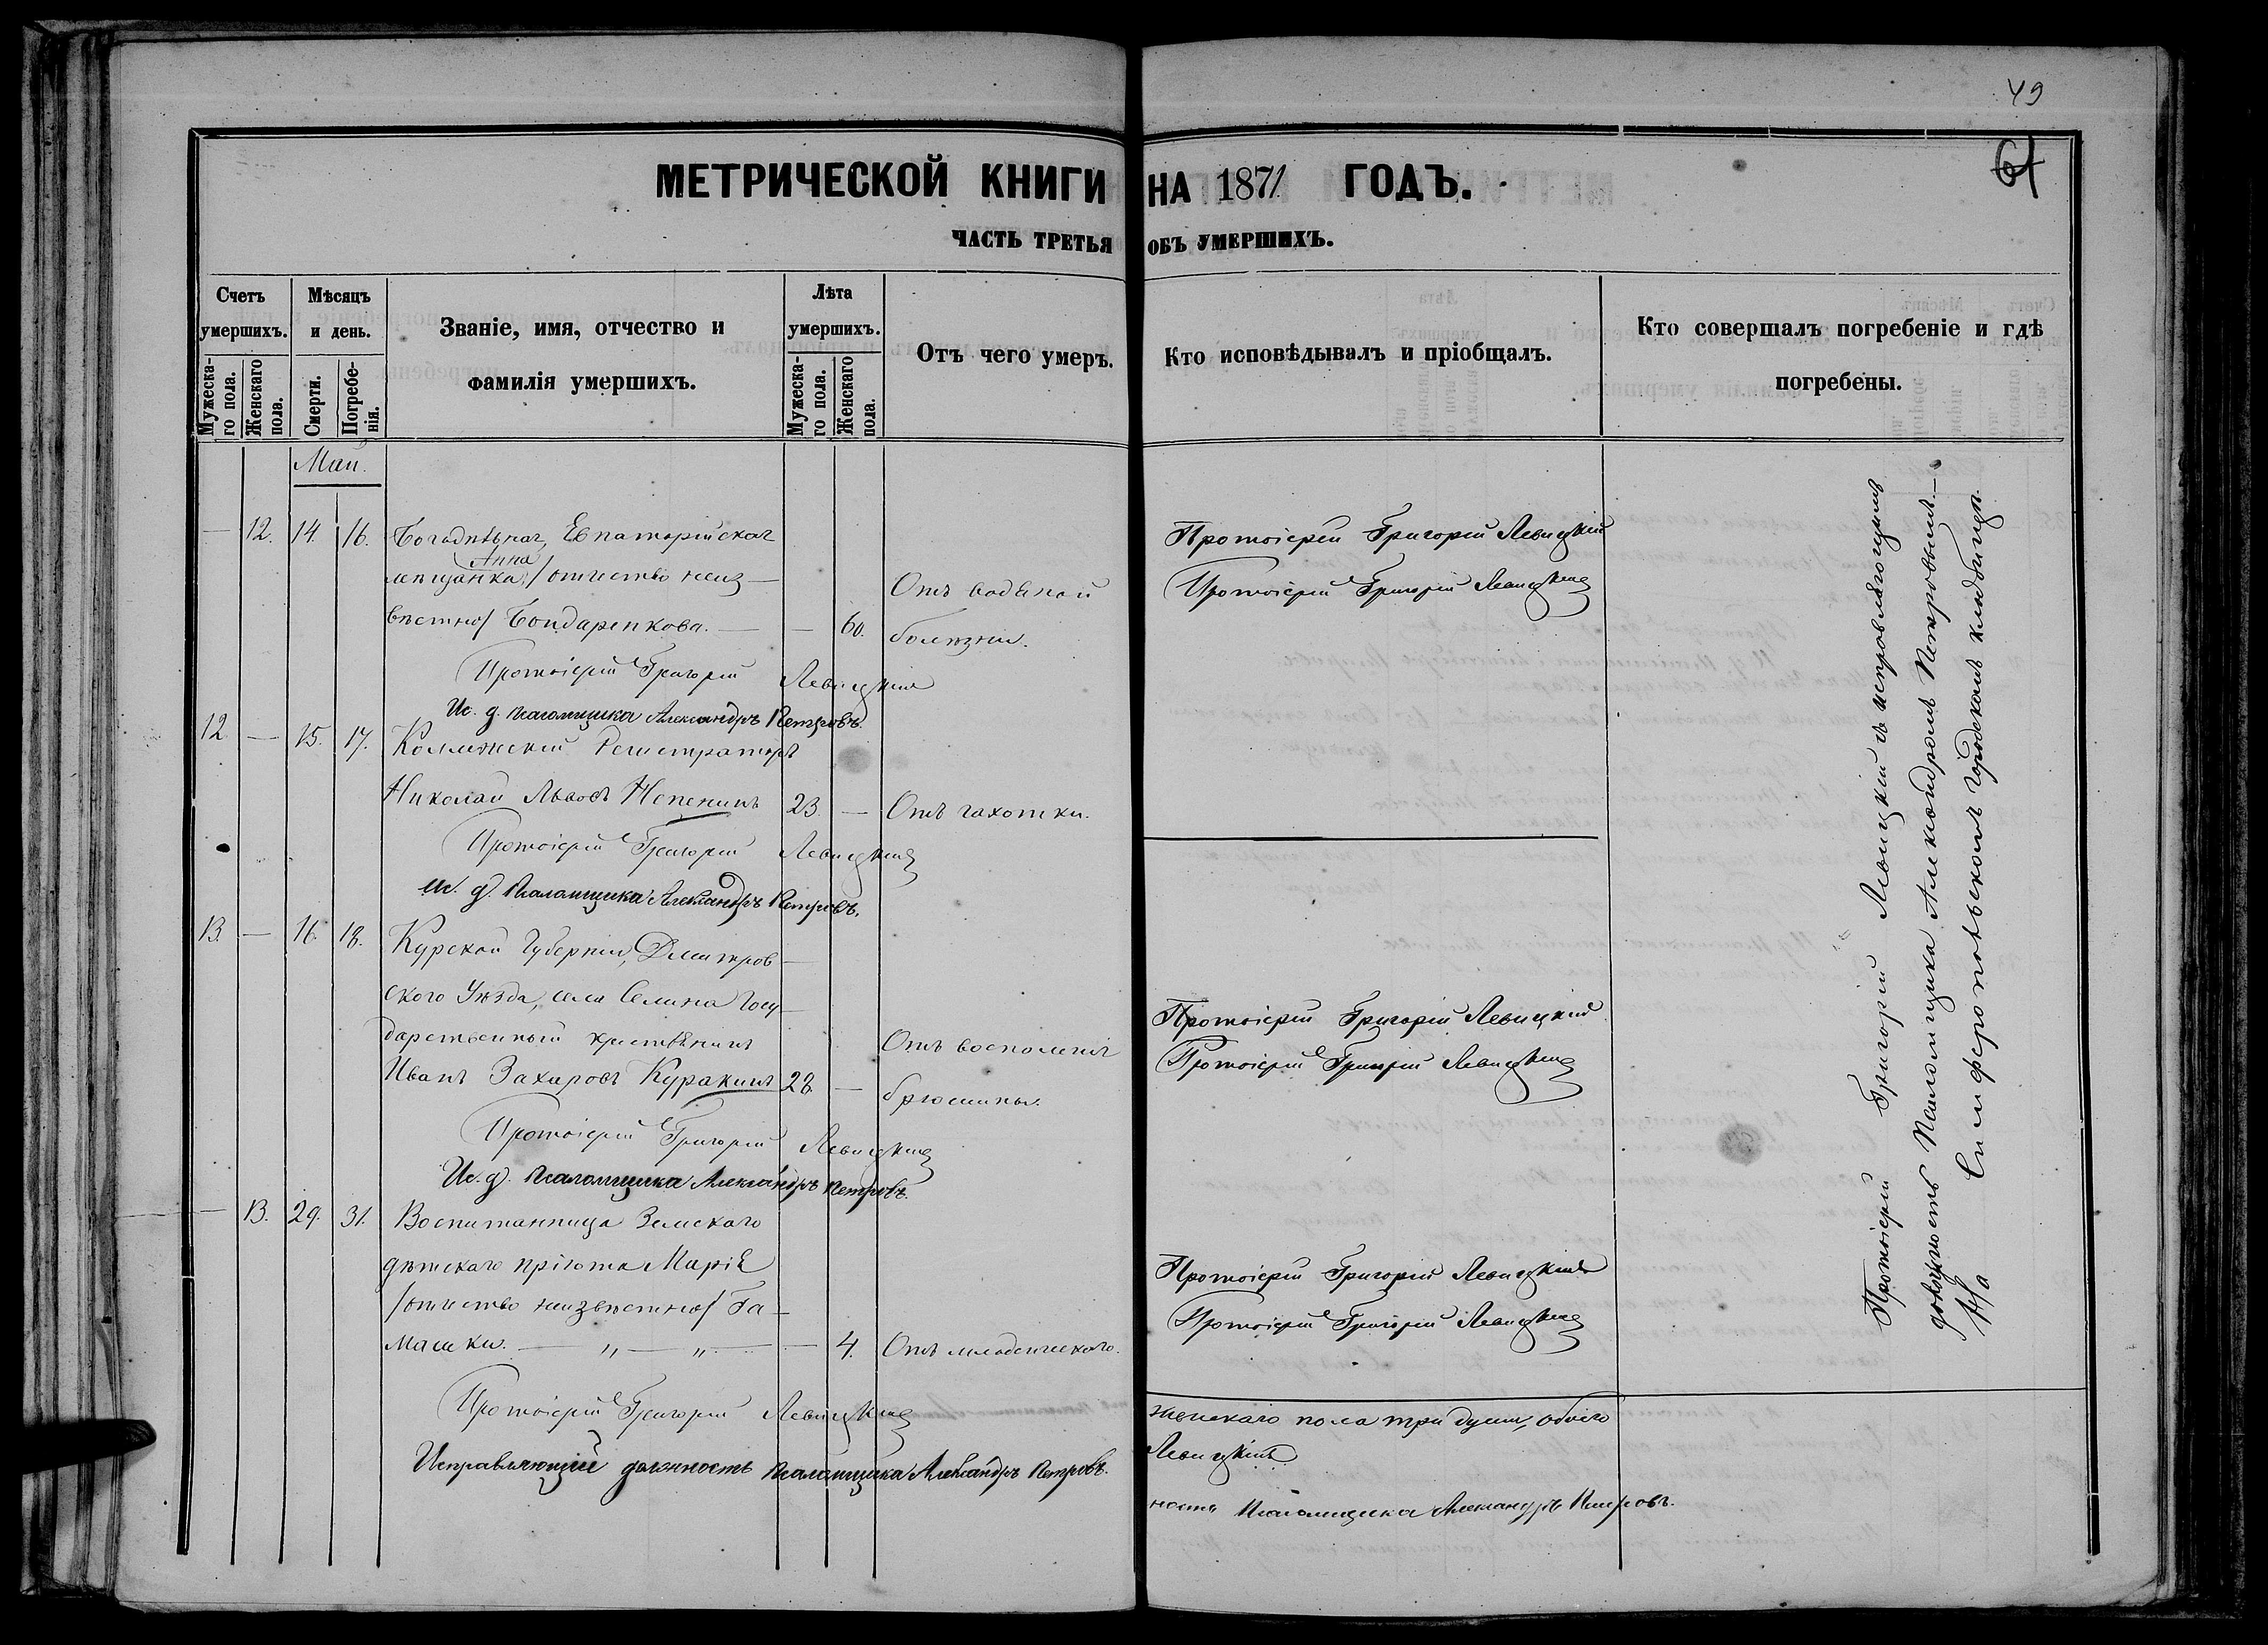 49
64
МЕТРИЧЕСКОЙ КНИГИ НА 1871 ГОДЪ.
ЧАСТЬ ТРЕТЬЯ ОБЪ УМЕРШИХЪ.
Счетъ умершихъ.
Мужеска-го пола.
Женскаго пола.
Мѣсяцъ и день.
Смерти.
Погребе-нія.
Званіе, имя, отчество и
фамилія умершихъ.
Лѣта умершихъ.
Мужеска-го пола.
Женскаго пола.
Отъ чего умеръ.
Кто исповѣдывалъ и пріобщалъ.
Кто совершалъ погребеніе и гдѣ
погребены.
Май.
— 12. 14. 16. Богадѣльная, Евпаторійская
Анна
мѣщанка, /отчество неиз—
вѣстно/ Бондаренкова. — — 60.
Отъ водяной
болѣзни.
Протоіерей Григорій Левицкій
Протоіерей Григорій Левицкій
Протоіерей Григорій Левицкій
Ис. д. псаломщика Александръ Петровъ.
12. — 15. 17. Коллежскій Регистраторъ
Николай Львовъ Непенинъ 23. — Отъ чахотки.
Протоіерей Григорій Левицкій
Ис. д. псаломщика Александръ Петровъ.
13. — 16. 18. Курской Губерніи, Дмитров—
скаго Уѣзда, села Селина Госу—
дарственный крестьянинъ
Иванъ Захаровъ Куракинъ 28. —
Отъ воспаленія
брюшины.
Протоіерей Григорій Левицкій
Протоіерей Григорій Левицкій
Протоіерей Григорій Левицкій
Ис. д. псаломщика Александръ Петровъ.
— 13. 29. 31. Воспитанница Земскаго
дѣтскаго пріюта Марія
/отчество неизвѣстно/ Га—
машки. — „ — „ — — 4. Отъ младенческаго.
Протоіерей Григорій Левицкій
Протоіерей Григорій Левицкій
Протоіерей Григорій Левицкій
Исправляющій должность псаломщика Александръ Петровъ.
Протоіерей Григорій Левицкій съ исправляющимъ
должность Псаломщика Александромъ Петровымъ.—
На Симферопольскомъ городскомъ кладбищѣ.
женскаго пола три души, обоего
Левицкій
ность псаломщика Александръ Петровъ.